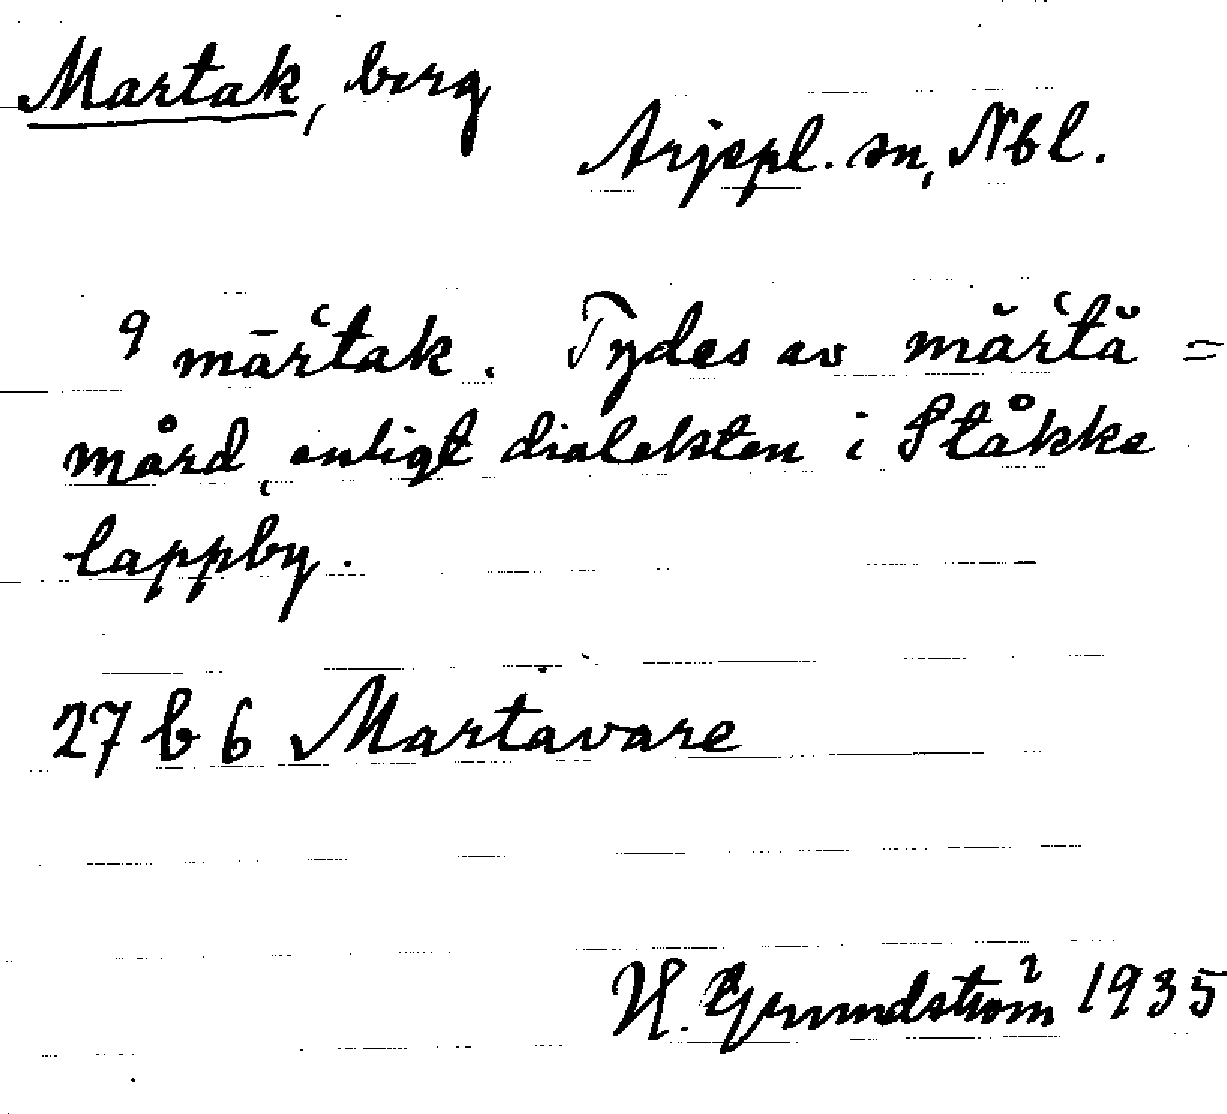 Martak, berg
Arjepl. sn, Nbl.
9 mārʿtak. Tydes av mărʿtă =
mård, enligt dialekten i Ståkke
lappby.
27 b 6 Martavare
H. Grundström 1935